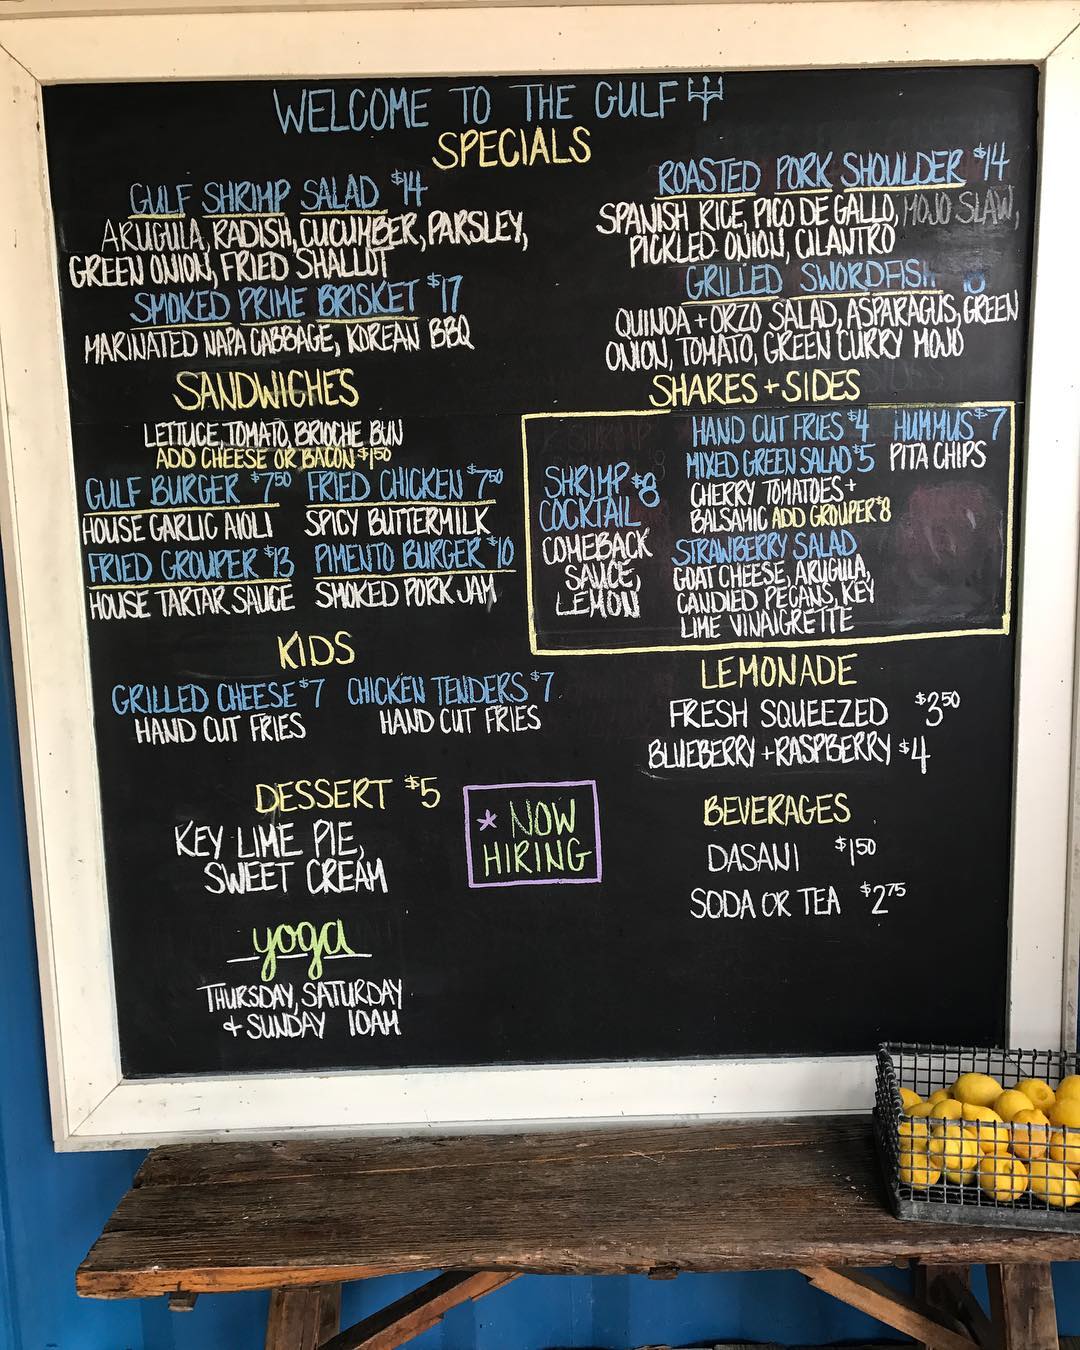 WELCOME TO THE GULF
SPECIALS
GULF SHRIMP SALAD $14
ARUGULA, RADISH, CUCUMBER, PARSLEY,
GREEN ONION, FRIED SHALLOT
SMOKED PRIME BRISKET $17
MARINATED NAPA CABBAGE, KOREAN BBQ
ROASTED PORK SHOULDER $14
SPANISH RICE, PICO DE GALLO, MOJO SLAW,
PICKLED ONION, CILANTRO
GRILLED SWORDFISH
QUINOA + ORZO SALAD, ASPARAGUS, GREEN
ONION, TOMATO, GREEN CURRY MOJO
SANDWICHES
LETTUCE, TOMATO, BRIOCHE BUN
ADD CHEESE OR BACON $1.50
GULF BURGER $7.50
HOUSE GARLIC AIOLI
FRIED CHICKEN $7.50
SPICY BUTTERMILK
FRIED GROUPER $13
HOUSE TARTAR SAUCE
PIMENTO BURGER $10
SMOKED PORK JAM
SHARES + SIDES
SHRIMP $8
COCKTAIL
COMEBACK
SAUCE,
LEMON
HAND CUT FRIES $4
MIXED GREEN SALAD $5
CHERRY TOMATOES +
BALSAMIC ADD GROUPER $8
STRAWBERRY SALAD
GOAT CHEESE, ARUGULA,
CANDIED PECANS, KEY
LIME VINAIGRETTE
HUMMUS $7
PITA CHIPS
KIDS
GRILLED CHEESE $7
HAND CUT FRIES
CHICKEN TENDERS $7
HAND CUT FRIES
LEMONADE
FRESH SQUEEZED $3.50
BLUEBERRY + RASPBERRY $4
DESSERT $5
KEY LIME PIE,
SWEET CREAM
* NOW
HIRING
BEVERAGES
DASANI $1.50
SODA OR TEA $2.75
yoga
THURSDAY, SATURDAY
+ SUNDAY 10AM